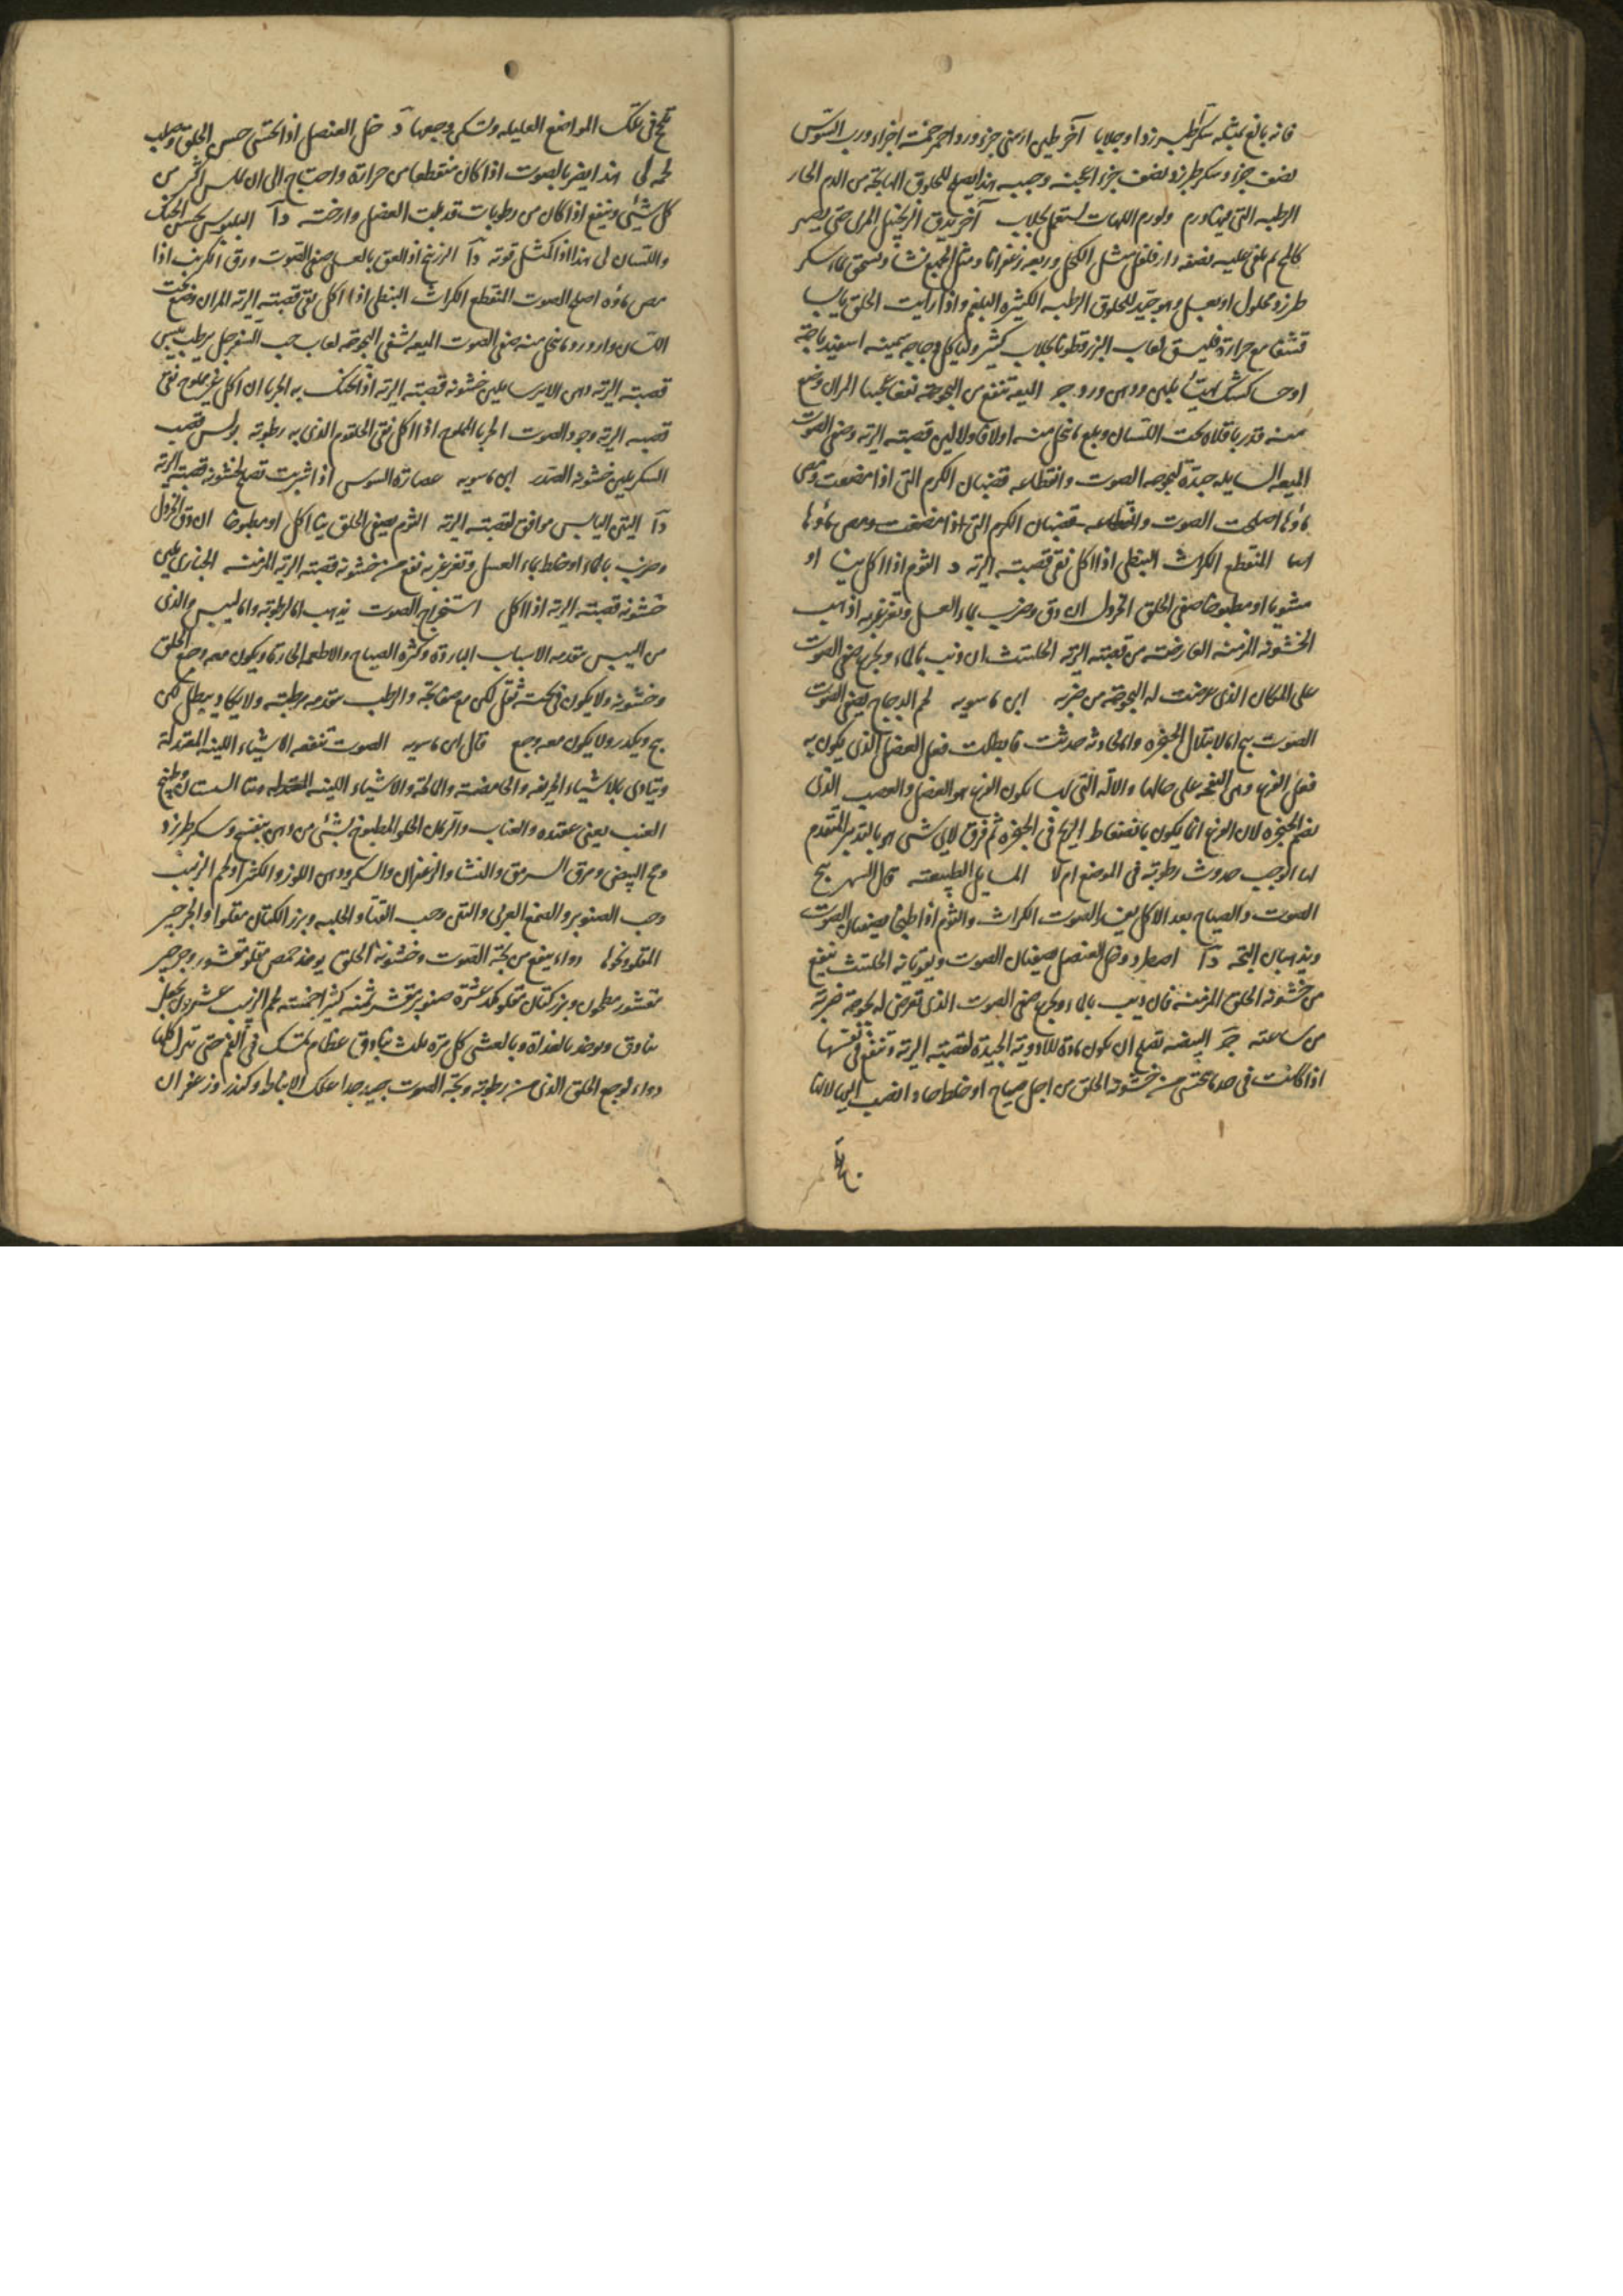 فانه بالغ سكر طبرزد او جلابا آخر طين ارمنى جزو ورد احمر خمسة اجزاء ورب السوس
نصف جزء وسكر طبرزد نصف جزء اعجنه وحببه هذا يصلح للحلوق الهايجة من الدم الحار
الرطبه التى فيها ورم ولورم اللهات يستعمل بجلاب آخر يدق الزنجبيل المربى حتى يصير
كالمخ ثم يلقى عليه نصفه دار فلفل مثل الكحل وربعه زعفرانا ومثل الجميع نشا ويسحق بماء سكر
طبرزد محلول او بعسل وهو جيد للحلوق الرطبه الكثيره البلغم واذا رايت الحلق يابسا
قشفا مع حرارة فليسق لعاب البزرقطونا بجلاب كثير ولياكل دجاجه سمينه اسفيدباجة
او حسا كشك بدهن ورد جو الميعة تنفع من البحوحة نفعا عجيبا المران وضع
منه قدر باقلاه تحت اللسان وبلع ما ينحل منه اولا فاولا لين قصبة الرية وصفى الصوت
الميعه السايله جيدة لبحوحه الصوت وانقطاعه قضبان الكرم التى اذا مضغت ومص
ماؤها اصلحت الصوت وانقطاعه قضبان الكرم التى اذا مضغت ومص ماؤها
المنقطع الكراث النبطى اذا اكل نقى قصبة الرية د الثوم اذا اكل نيا او
مشويا او مطبوخا صفى الحلق الخردل ان دق وضرب بماء العسل وتغرغر به اذهب
الخشونه المزمنه العارضه من قصبة الرية الحلتيت ان ذيب بالماء وتجرع صفى الصوت
على المكان الذى عرضت له البحوحة من ضربه ابن ماسويه لحم الدجاج يصفى الصوت
الصوت يبح اما لابتلال الحنجره واما لحادثه حدثت فابطلت فعل العضل الذى يكون به
فعل القرع وهى النفخه على حالها والآلة التى بها يكون القرع هو العضل والعصب الذى
يضم الحنجره لان القرع انما يكون بانضغاط الريح فى الحنجره ثم فرق لاى شى هو بالتدبير المتقدم
الوجب حدوث رطوبة فى الموضع ام لا المسايل الطبيعيه قال السهر يبح
الصوت والصياح بعد الاكل يضر الصوت الكراث والثوم اذا طبخا يصفيان الصوت
ويذهبان البحة دآ وخل العنصل يصفيان الصوت ويقويانه الحلتيت ينفع
من خشونه الحلق المزمنه فان ذيب بالماء وتجرع صفى الصوت الذى تعرض له بحوحة ضربة
من ساعته البيضه تصلح ان يكون مادة للادوية الجيدة لقصبة الرية وتنفع فى نفسها
اذا كانت فى حد ما تحسى من خشونة الحلق من اجل صياح او خلط حاد انصب اليها لانها
تلحج فى تلك المواضع العليله وتسكن وجعها د خل العنصل اذا تحسى حسن الحلق وصلب
لحمه لى هذا يضر بالصوت اذا كان منقطعا من حرارة واحتاج الى ان يملس اكثر من
كل شىء وينفع اذا كان من رطوبات قد بلت العضل وارخته دآ البلبوس يخشن الحنك
واللسان لى هذا اذا اكتمل قوته دآ الزرنيخ اذا لعق بالعسل صفى الصوت ورق الكرنب اذا
مص ماؤه اصلح الصوت المنقطع الكراث النبطى اذا اكل نقى قصبة الرية المران وضع تحت
اللسان وازدرد ما ينحل منه صفى الصوت الميعه يشفى البحوحه لعاب حب السفرجل يرطب يبس
قصبة الرية دهن الايرسا يلين خشونه قصبة الرية اذا تحنك به الجرى ان اكل غير مملوح نقى
قصبه الرية وجود الصوت الجرى المملوح اذا اكل نقى الحلقوم الذى به رطوبه بولس قصب
السكر يلين خشونه الصدر ابن ماسويه عصارة السوس اذا شربت تصلح لخشونة قصبة الرية
دآ التين اليابس موافق لقصبة الرية الثوم يصفى الحلق نيا اكل او مطبوخا ان دق الخردل
وضرب بالماء او خلط بماء العسل وتغرغر به نفع من خشونه قصبة الرية المزمنه الخبازى يلين
خشونه قصبة الرية اذا اكل استخراج الصوت يذهب اما لرطوبه واما ليبس والذى
من اليبس يتقدمه الاسباب الباردة وكثرة الصياح والاطعمه الحارة ويكون معه وجع الحلق
وخشونه ولا يكون فى بحته ثقل لكن مع صفا بحة والرطب يتقدمه مرطبه ولا يكاد يبطل لكن
يبح ويكدر ولا يكون معه وجع قال ابن ماسويه الصوت تنفعه الاشياء اللينه المعتدلة
ويتاذى بالاشياء الحريفه والحامضه والمالحة والاشياء اللينه وطبيخ
العنب يعنى عقيده والعناب والرمان الحلو المطبوخ بشىء من دهن بنفسج وسكر طبرزد
ومح البيض ومرق السرمق والنشا والزعفران والسكر ودهن اللوز والكثيرا ولحم الزبيب
وحب الصنوبر والصمغ العربى والتين وحب القثا والحلبه وبزر الكتان مقلوا والجرجير
المقلو ونحوها دواء ينفع من بحة الصوت وخشونة الحلق يوخذ حمص مقلو مقشور وجرجير
مقشور مطحون وبزر كتان مقلو كد عشرة صنوبر مقشر ثمنه كثيرا خمسه لحم الزبيب عشرون يجعل
بنادق ويوخذ بالغداة وبالعشى كل مرة ثلث بنادق عظام يمسك فى الفم حتى تنزل كلها
دواء لوجع الحلق الذى من رطوبة وبحة الصوت جيد جدا علك الانباط وكندر وزعفران